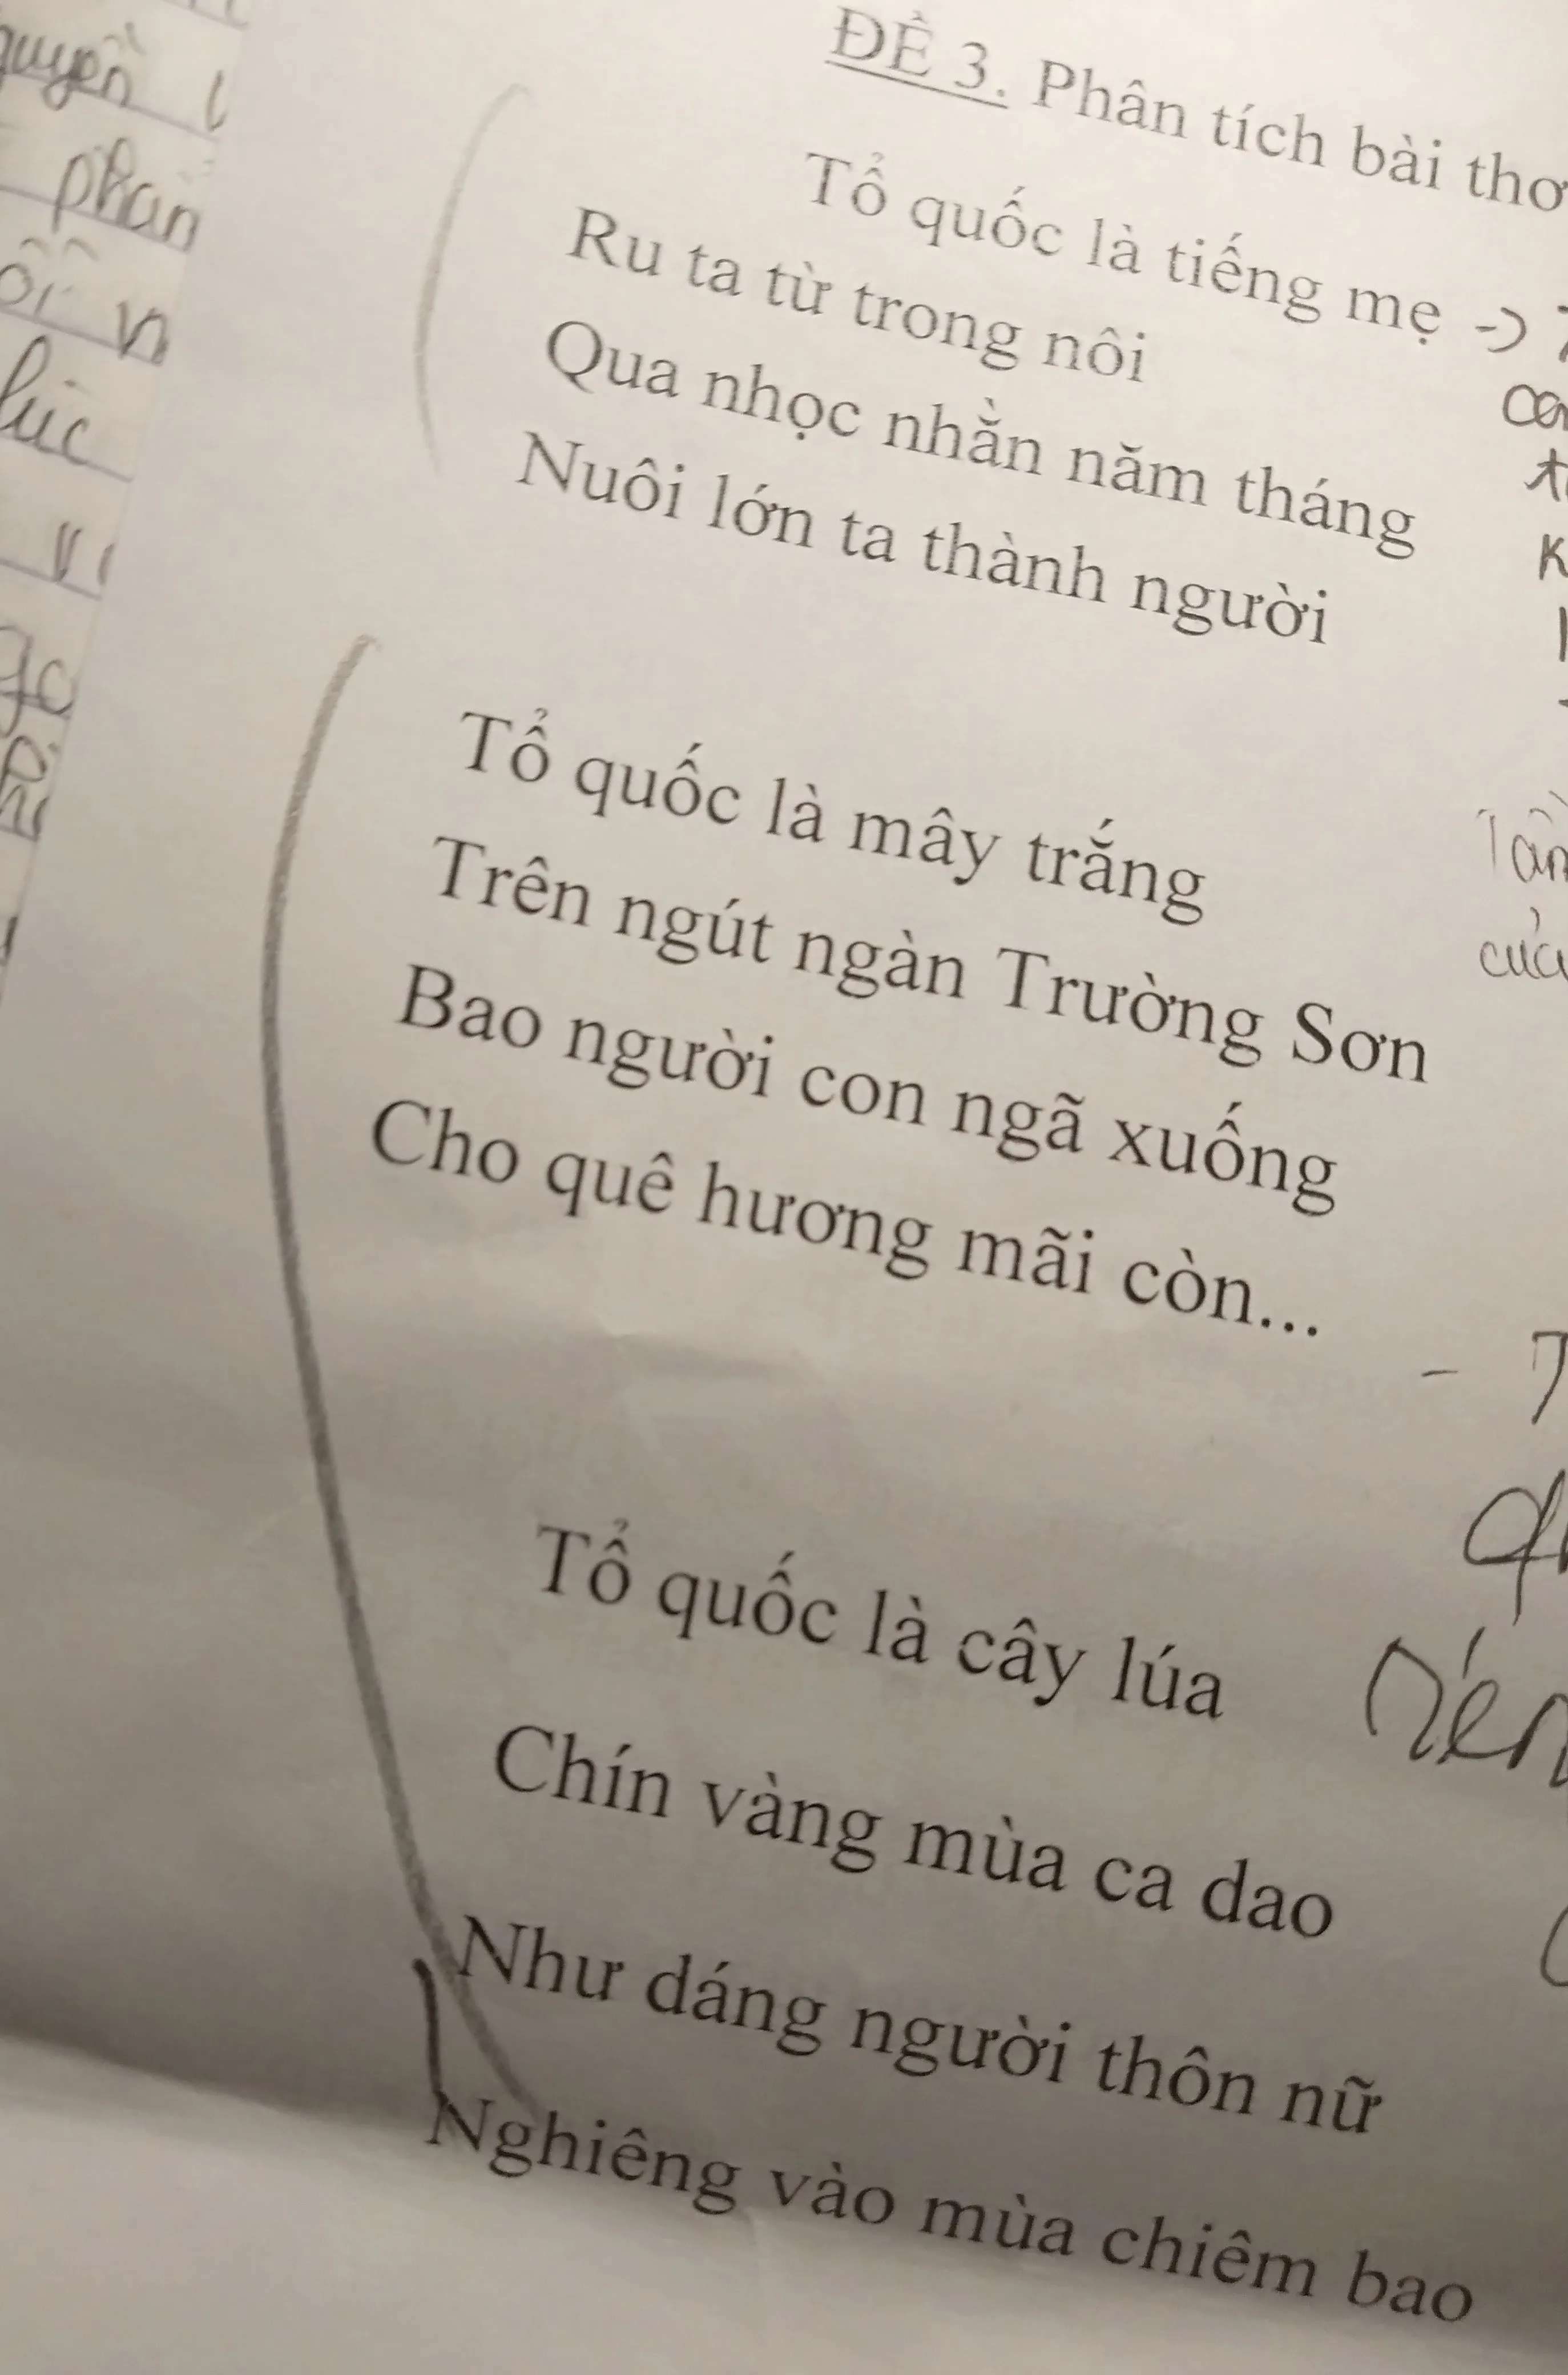 ĐỀ 3. Phân tích bài thơ
Tổ quốc là tiếng mẹ ->
Ru ta từ trong nôi
Qua nhọc nhằn năm tháng
Nuôi lớn ta thành người
Tổ quốc là mây trắng
Trên ngút ngàn Trường Sơn
Bao người con ngã xuống
Cho quê hương mãi còn...
Tổ quốc là cây lúa
Chín vàng mùa ca dao
Như dáng người thôn nữ
Nghiêng vào mùa chiêm bao
phan
lúc
của